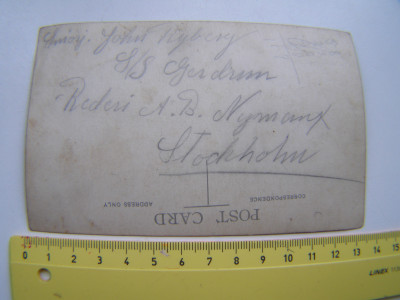 John Nyberg
S/S Gerdrun
Rederi A.B. Nyman
Stockholm
CORRESPONDENCE
ADDRESS ONLY
POST CARD
0 1 2 3 4 5 6 7 8 9 10 11 12 13 14 15
LINEX